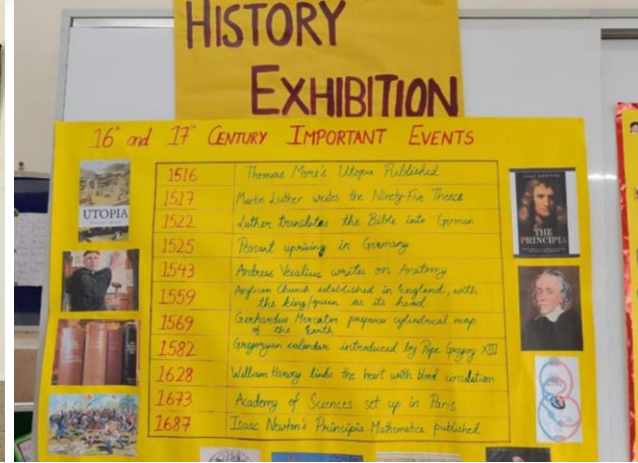 HISTORY
EXHIBITION
16th and 17th CENTURY IMPORTANT EVENTS
1516 Thomas More's Utopia Published
1517 Martin Luther writes the Ninety-Five Theses
1522 Luther translates the Bible into German
1525 Peasant uprising in Germany
1543 Andreas Vesalius writes on Anatomy
1559 Anglican Church established in England, with
the king/queen as its head
1569 Gerhardus Mercator prepares cylindrical map
of the Earth
1582 Gregoryan calendar introduced by Pope Gregory XIII
1628 William Harvey links the heart with blood circulation
1673 Academy of Sciences set up in Paris
1687 Isaac Newton's Principia Mathematica published
UTOPIA
THE
PRINCIPIA